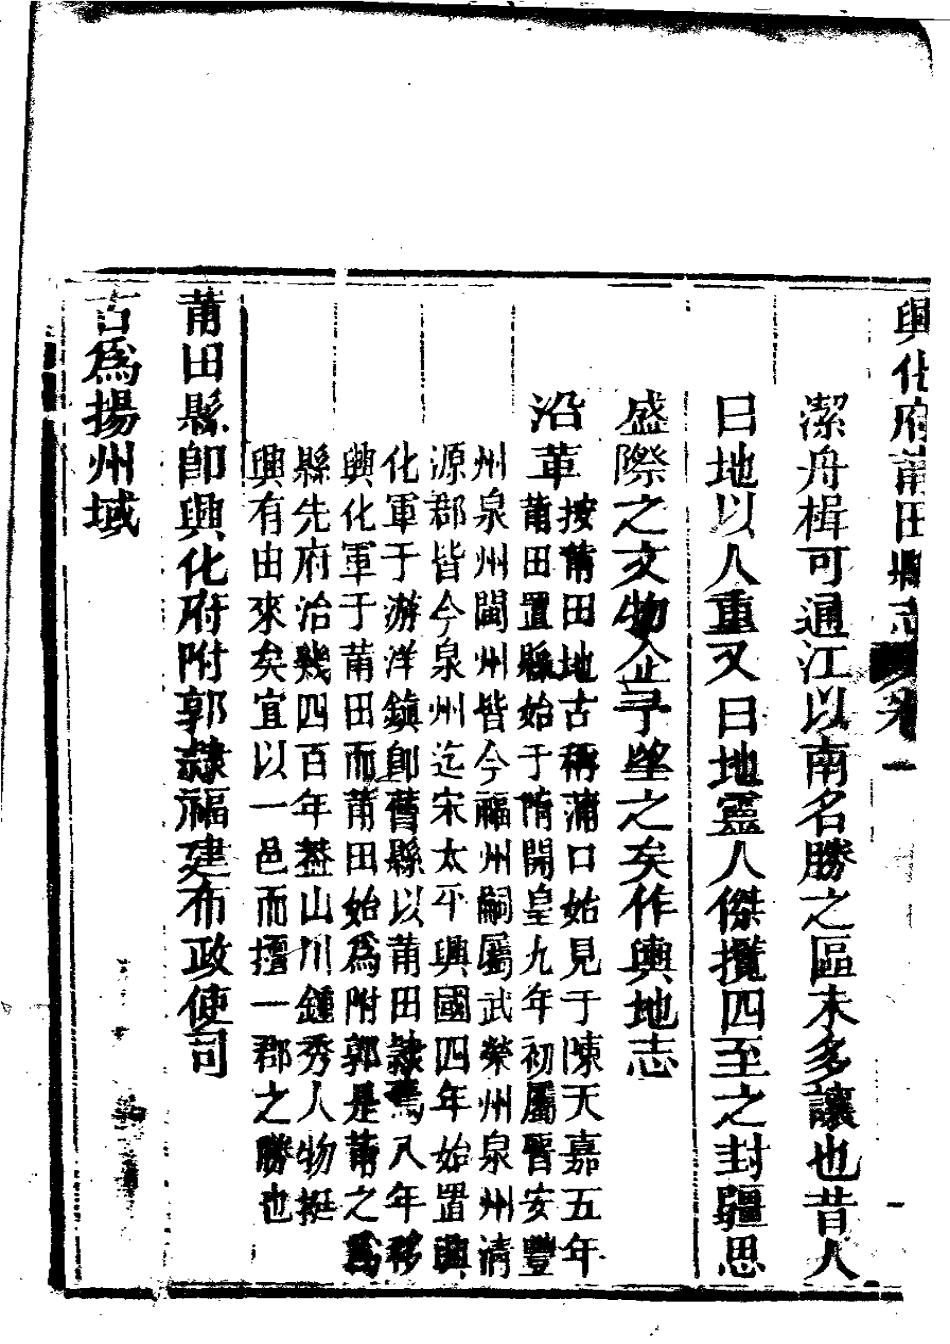 興化府莆田縣志 卷一
潔舟楫可通江以南名勝之區未多讓也昔人
曰地以人重又曰地靈人傑攬四至之封疆思
盛際之文物企予望之矣作輿地志
沿革
按莆田地古稱蒲口始見于陳天嘉五年
莆田置縣始于隋開皇九年初屬晉安豐
州泉州閩州皆今福州嗣屬武榮州泉州清
源郡皆今泉州迄宋太平興國四年始置興
化軍于游洋鎮卽舊縣以莆田隸焉八年移
興化軍于莆田而莆田始爲附郭是莆之爲
縣先府治幾四百年葢山川鍾秀人物挺
興有由來矣宜以一邑而擅一郡之勝也
莆田縣卽興化府附郭隸福建布政使司
古爲揚州域